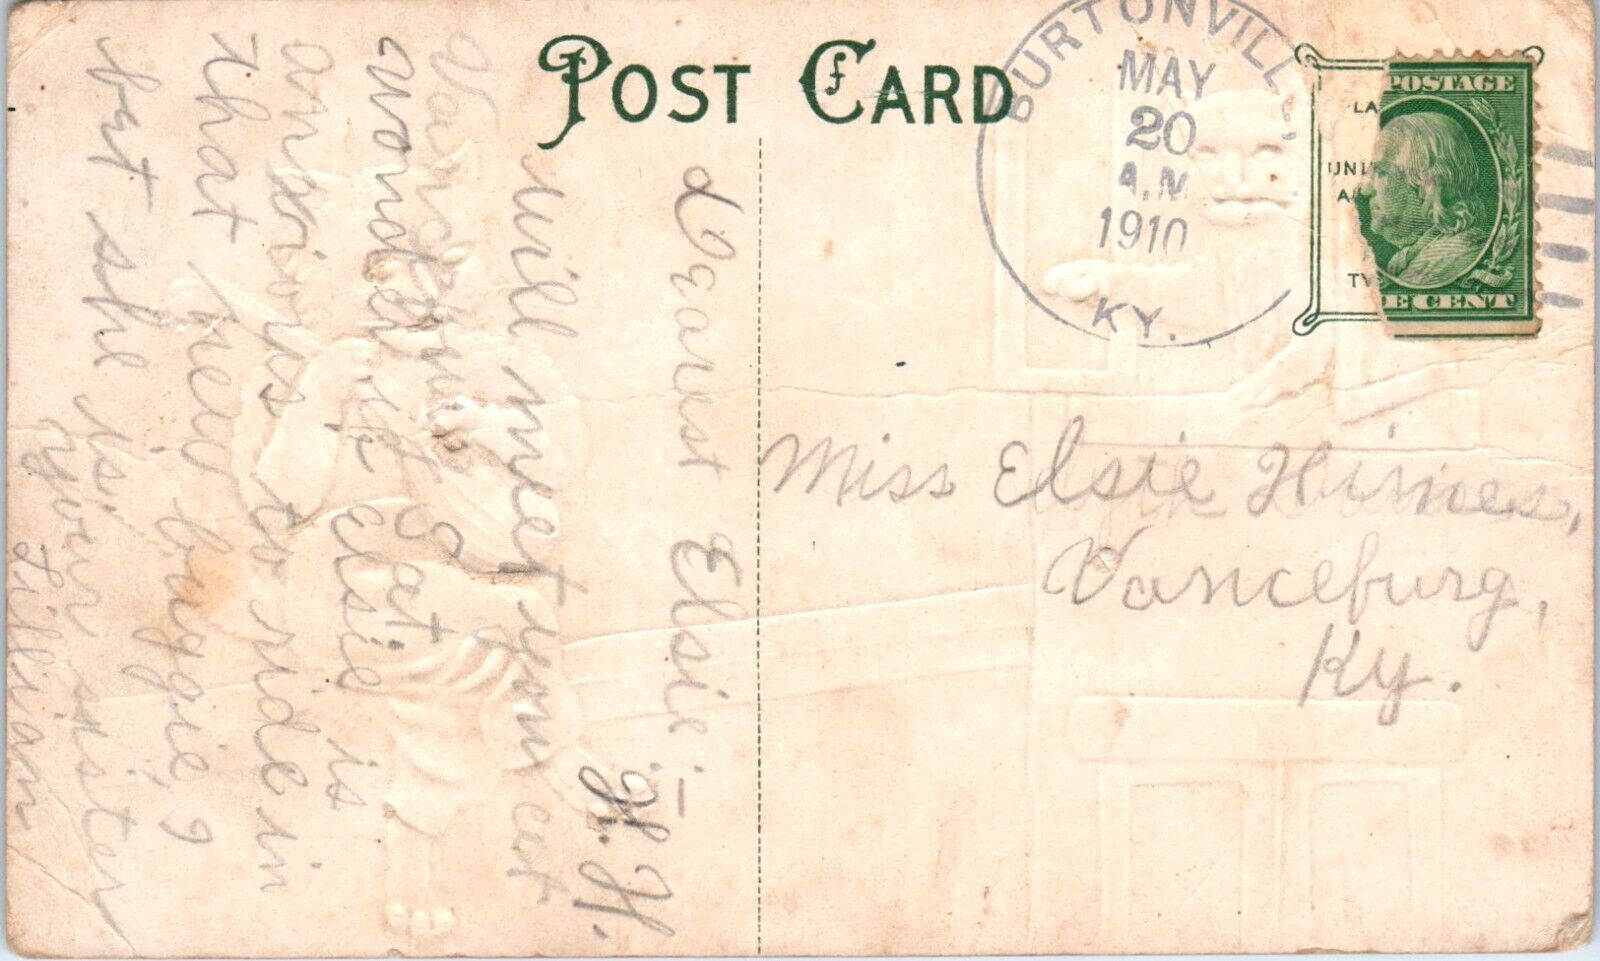 POST CARD
BURTONVILLE,
MAY
20
A.M.
1910
KY.
POSTAGE
LA
UNI
A
TY
E CENT
Miss Elsie Himes,
Vanceburg,
Ky.
Dearest Elsie:—
Will meet you at
H. H.
Vanceburg Sat.
Wonder if Elsie is
anxious to ride in
that new buggie, I
bet she is.
your sister
Lillian